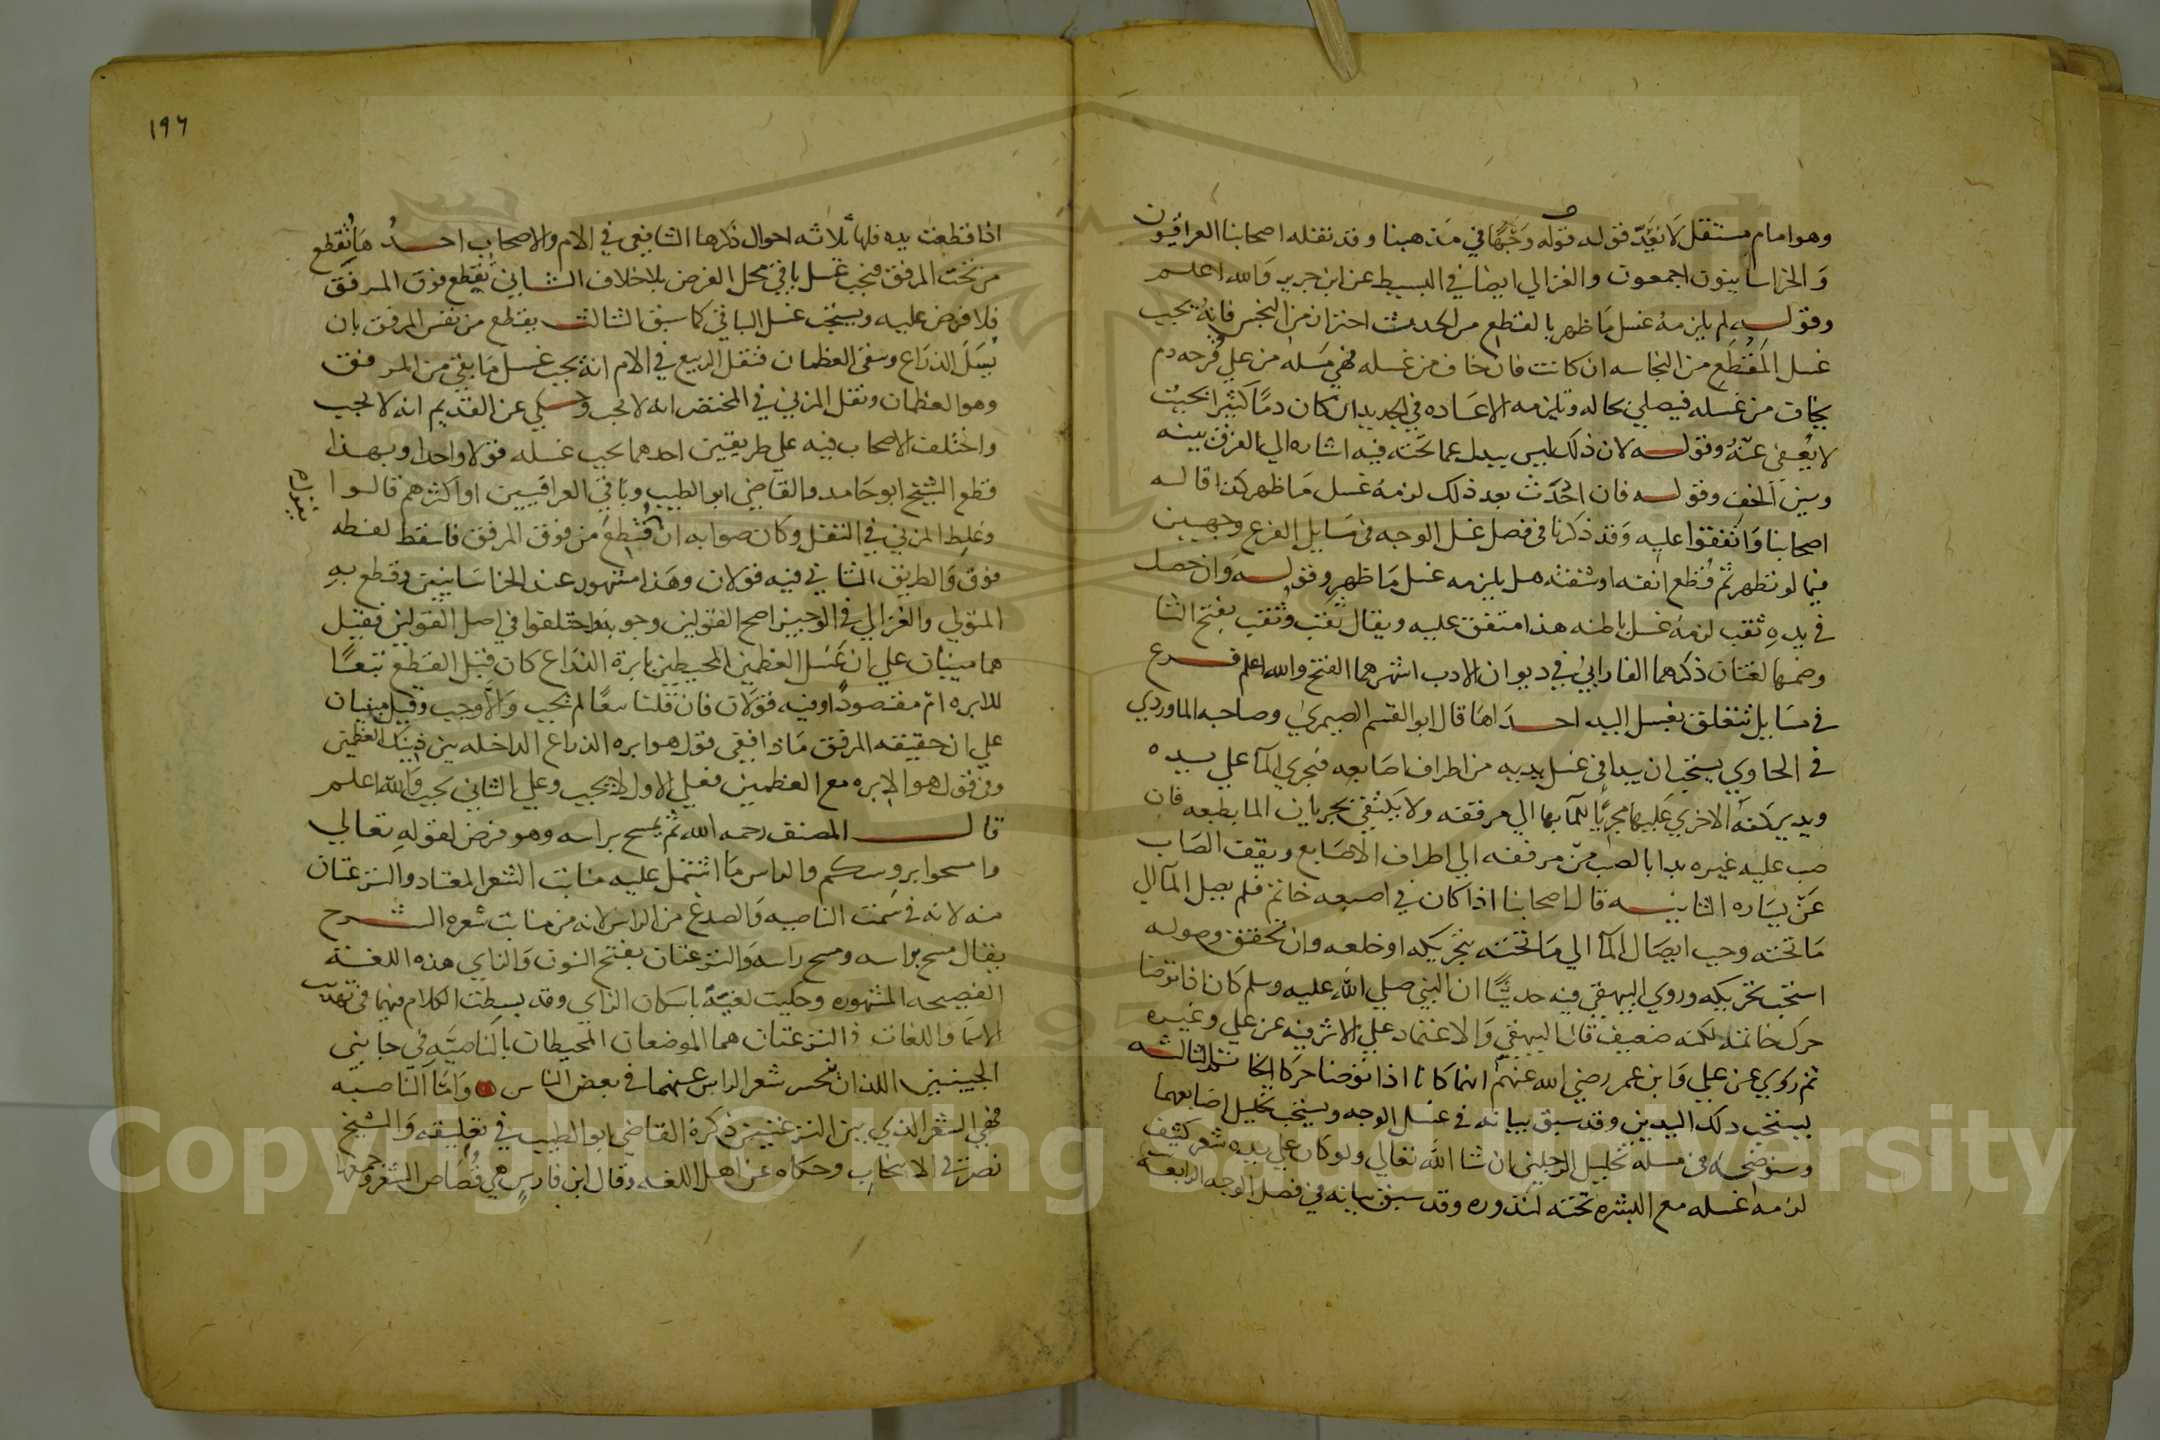 وهو امام مستقل لا يعد قوله وجها في مذهبنا وقد نقله اصحابنا العراقيون
والخراسانيون اجمعون والغزالي ايضا في البسيط عن ابن جرير والله اعلم
وقوله لم يلزمه غسل ما ظهر بالقطع من الحدث احتراز من النجس فانه يجب
غسل المقطع من النجاسه ان كانت فان خاف من غسله فهي مسله من علي قرحه دم
يخاف من غسله فيصلي بحاله وتلزمه الاعاده في الجديد ان كان دما كثيرا بحيث
لا يعفى عنه وقوله لان ذلك ليس ببدل عما تحته فيه اشاره الي الفرق بينه
وبين الخف وقوله فان احدث بعد ذلك لزمه غسل ما ظهر كذا قاله
اصحابنا واتفقوا عليه وقد ذكرنا في فصل غسل الوجه في مسايل الفرع وجهين
فيما لو تطهر ثم قطع انفه او شفته هل يلزمه غسل ما ظهر وقوله وان حصل
في يده ثقب لزمه غسل باطنه هذا متفق عليه ويقال ثقب وثقب بفتح الثا
وضمها لغتان ذكرهما الفارابي في ديوان الادب اشهرهما الفتح والله اعلم فرع
في مسايل تتعلق بغسل اليد احداها قال ابو القسم الصيمري وصاحبه الماوردي
في الحاوي يستحب ان يبدا في غسل يديه من اطراف اصابعه فيجري المآ علي يده
ويدير كفه الاخري عليها مجريا للمآ بها الي مرفقه ولا يكتفي بجريان الما بطبعه فان
صب عليه غيره بدا بالصب من مرفقه الي اطراف الاصابع ويقف الصاب
عن يساره الثانيه قال اصحابنا اذا كان في اصبعه خاتم فلم يصل المآ الي
ما تحته وجب ايصال المآ الي ما تحته بتحريكه او خلعه وان تحقق وصوله
استحب تحريكه وروي البيهقي فيه حديثا ان النبي صلي الله عليه وسلم كان اذا توضا
حرك خاتمه لكنه ضعيف قال البيهقي والاعتماد علي الاثر فيه عن علي وغيره
ثم روي عن علي وابن عمر رضي الله عنهم انهما كانا اذا توضا حركا الخاتم الثالثه
يستحب دلك اليدين وقد سبق بيانه في غسل الوجه ويستحب تخليل اصابعهما
وسنوضحه في مسله تخليل الرجلين ان شا الله تعالي ولو كان علي يده شعر كثيف
لزمه غسله مع البشره تحته لندوره وقد سبق بيانه في فصل الوجه الرابعه
١٩٦
اذا قطعت يده فلها ثلاثه احوال ذكرها الشافعي في الام والاصحاب احدها تقطع
من تحت المرفق فيجب غسل باقي محل الفرض بلا خلاف الثاني يقطع فوق المرفق
فلا فرض عليه ويستحب غسل الباقي كما سبق الثالث يقطع من نفس المرفق بان
يسل الذراع ويبقى العظمان فنقل الربيع في الام انه يجب غسل ما بقي من المرفق
وهو العظمان ونقل المزني في المختصر انه لا يجب وحكي عن القديم انه لا يجب
واختلف الاصحاب فيه علي طريقين احدهما يجب غسله قولا واحدا وبهذا
قطع الشيخ ابو حامد والقاضي ابو الطيب وباقي العراقيين او اكثرهم قالوا
وغلط المزني في النقل وكان صوابه ان قطع من فوق المرفق فاسقط لفظه
فوق والطريق الثاني فيه قولان وهذا مشهور عند الخراسانيين وقطع به
المتولي والغزالي في الوجيز اصح القولين وجوبه واختلفوا في اصل القولين فقيل
هما مبنيان علي ان غسل العظمين المحيطين بابرة الذراع كان قبل القطع تبعا
للابره ام مقصودا وفيه قولان فان قلنا تبعا لم يجب والا وجب وقيل مبنيان
علي ان حقيقه المرفق ماذا ففي قول هو ابره الذراع الداخله بين ذينك العظمين
وفي قول هو الابره مع العظمين فعلي الاول لا يجب وعلي الثاني يجب والله اعلم
قال المصنف رحمه الله ثم يمسح براسه وهو فرض لقوله تعالي
وامسحوا بروسكم والراس ما اشتمل عليه منابت الشعر المعتاد والنزعتان
منه لانه في سمت الناصيه والصدغ من الراس لانه من منابت شعره الشرح
يقال مسح براسه ومسح راسه والنزعتان بفتح النون والزاي هذه اللغة
الفصيحه المشهوره وحكيت لغية باسكان الزاي وقد بسطت الكلام فيهما في تهذيب
الاسما واللغات والنزعتان هما الموضعان المحيطان بالناصيه في جانبي
الجبينين اللذان ينحسر شعر الراس عنهما في بعض الناس واما الناصيه
فهي الشعر الذي بين النزعتين ذكره القاضي ابو الطيب في تعليقه والشيخ
نصر في الانتخاب وحكاه عن اهل اللغه وقال ابن فارس هي قصاص الشعر وجمعها